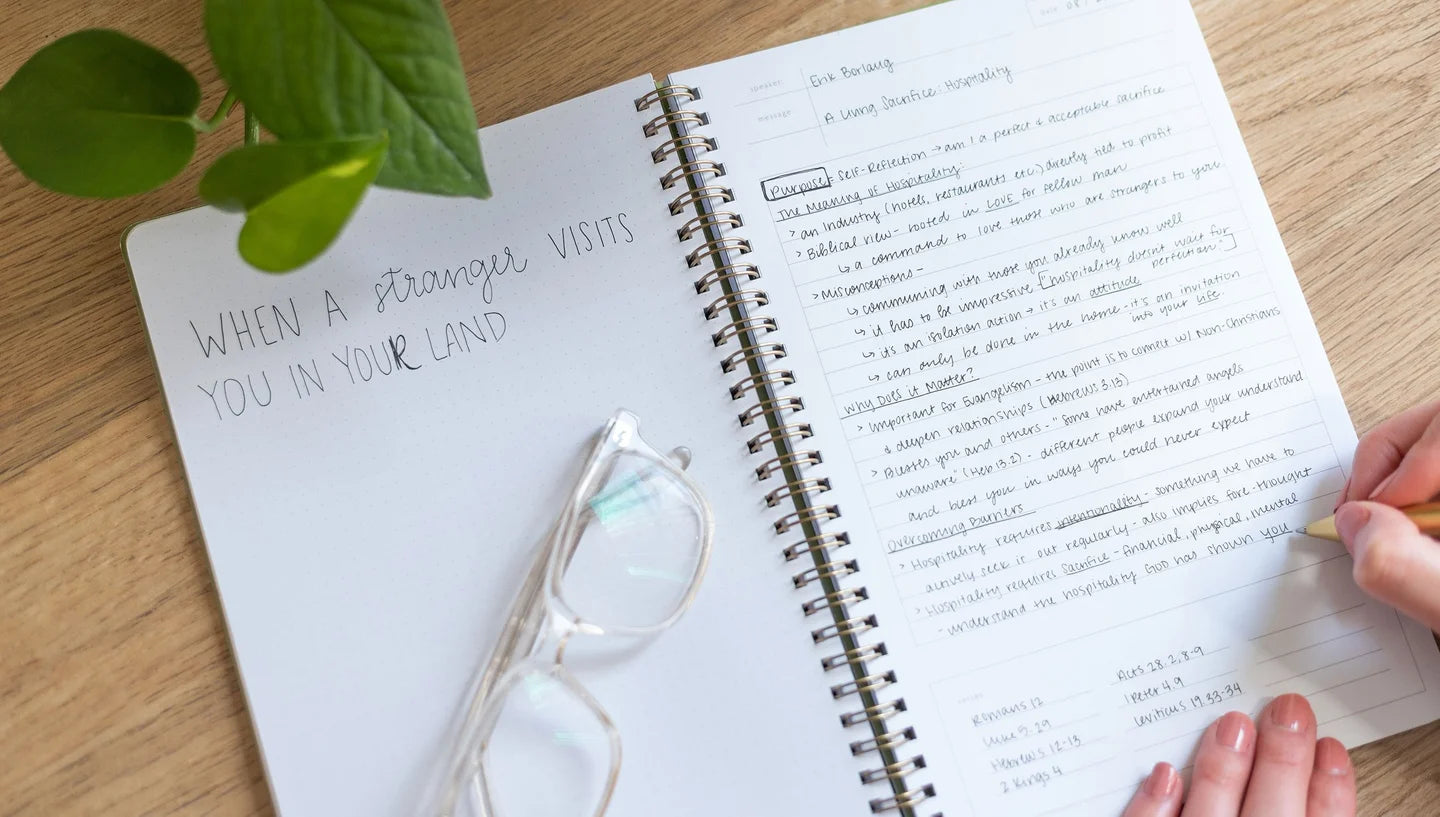 WHEN A stranger VISITS
YOU IN YOUR LAND
speaker Erik Borlaug
message A Living Sacrifice: Hospitality
Purpose: Self-Reflection → am I a perfect & acceptable sacrifice
The Meaning of Hospitality:
> an industry (hotels, restaurants etc.) directly tied to profit
> Biblical view - rooted in LOVE for fellow man
↳ a command to love those who are strangers to you
> Misconceptions -
↳ communing with those you already know well
↳ it has to be impressive ["hospitality doesn't wait for perfection."]
↳ it's an isolation action → it's an attitude
↳ can only be done in the home - it's an invitation into your life.
Why Does it Matter?
> Important for Evangelism - the point is to connect w/ Non-Christians
& deepen relationships (Hebrews 3.13)
> Blesses you and others - "some have entertained angels
unaware" (Heb 13.2) - different people expand your understand
and bless you in ways you could never expect
Overcoming Barriers
> Hospitality requires intentionality - something we have to
actively seek it out regularly - also implies fore-thought
> Hospitality requires sacrifice - financial, physical, mental
- understand the hospitality God has shown you
Romans 12
Luke 5.29
Hebrews 12-13
2 Kings 4
Acts 28.2, 8-9
1 Peter 4.9
Leviticus 19.33-34